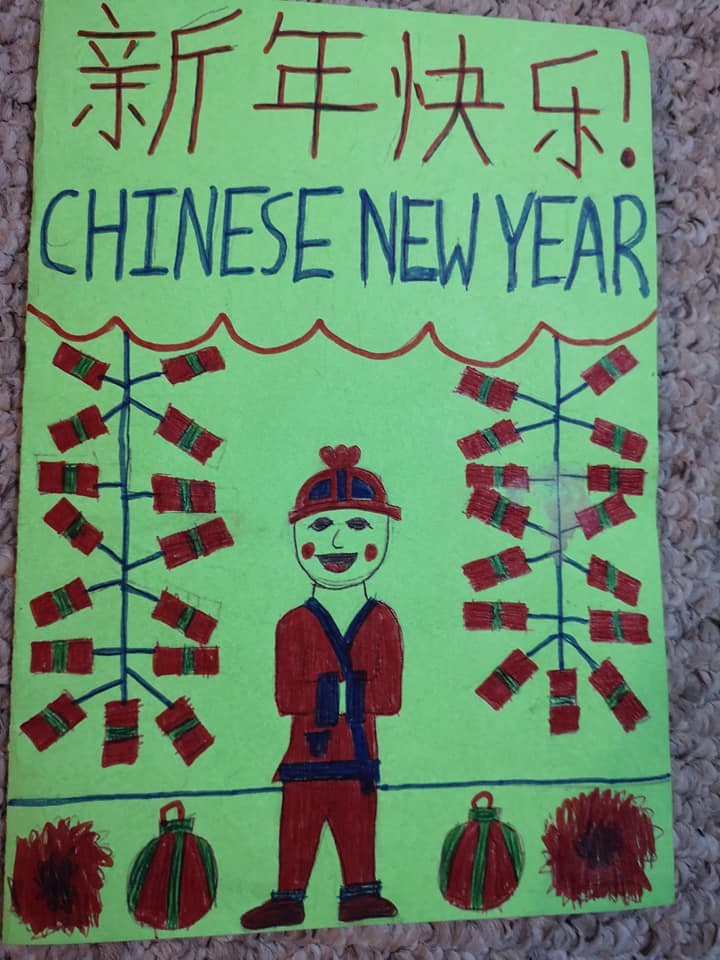 新年快乐!
CHINESE NEW YEAR